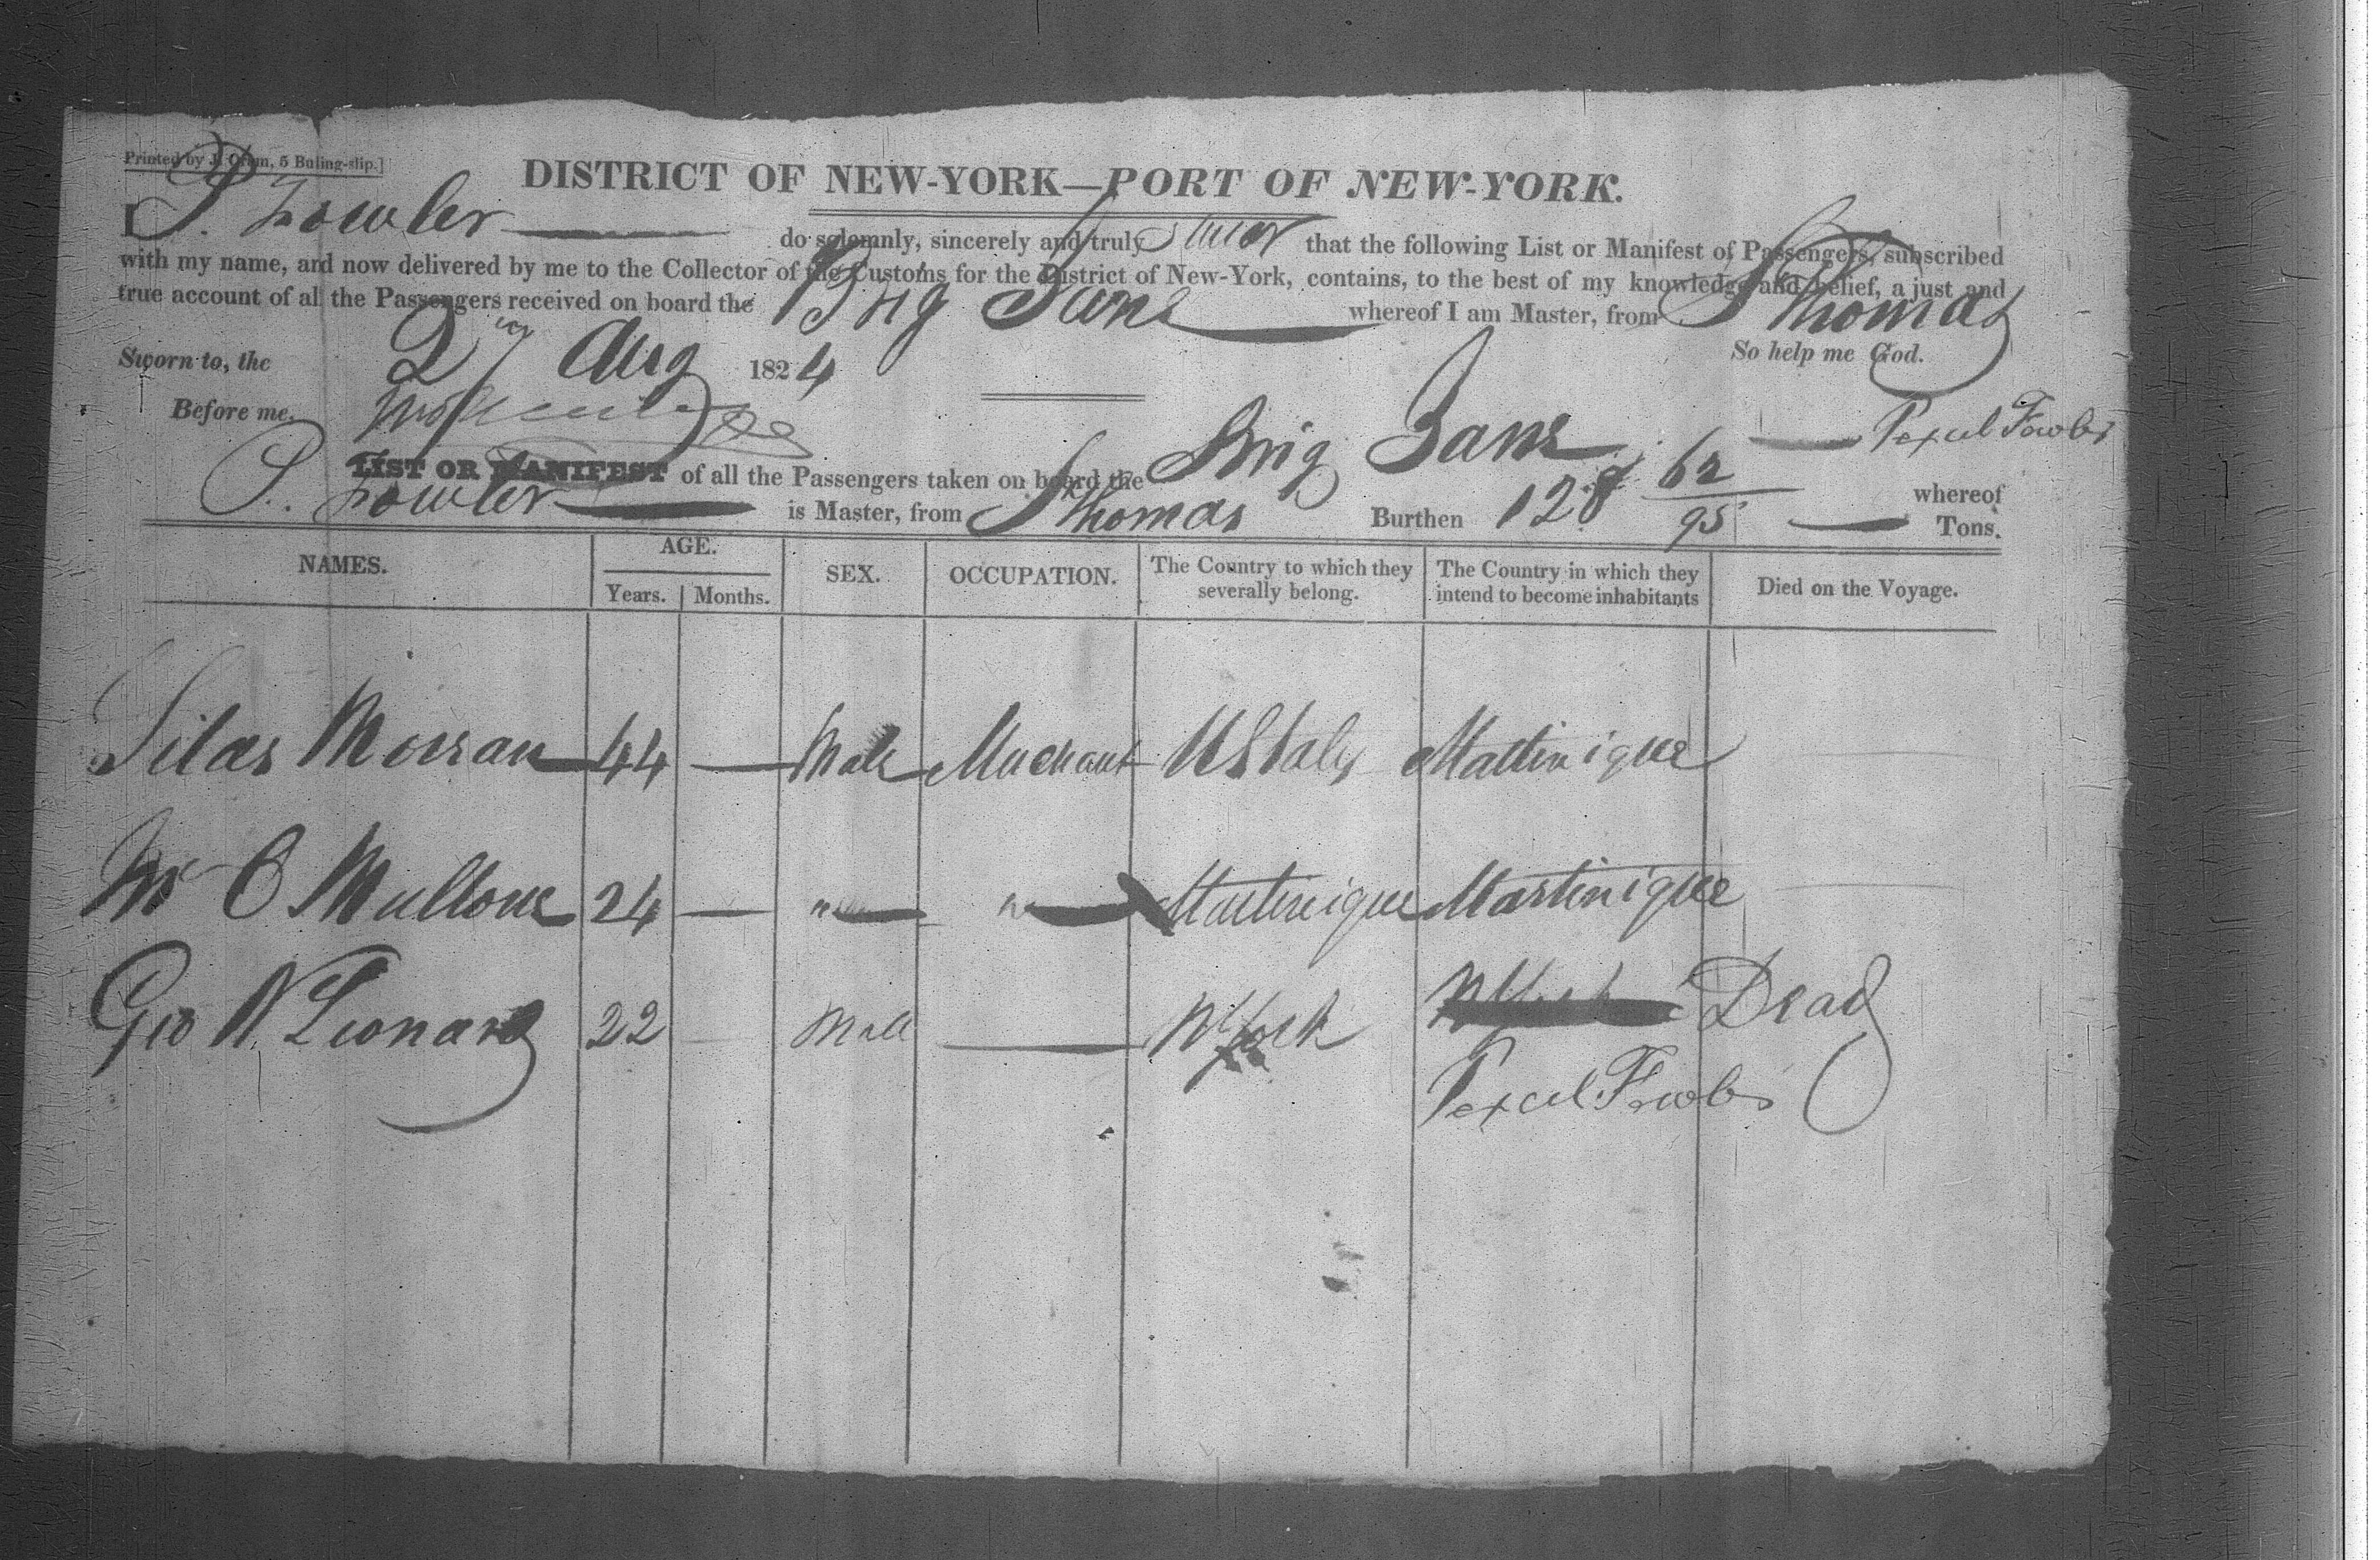 Printed by J. Oram, 5 Buling-slip.]
DISTRICT OF NEW-YORK—PORT OF NEW-YORK.
I P. Fowler do solemnly, sincerely and truly swear that the following List or Manifest of Passengers, subscribed
with my name, and now delivered by me to the Collector of the Customs for the District of New-York, contains, to the best of my knowledge and belief, a just and
true account of all the Passengers received on board the Brig Jane whereof I am Master, from St Thomas
Sworn to, the 2 Aug 1824 So help me God.
Before me.
Pexcel Fowler
LIST OR MANIFEST of all the Passengers taken on board the Brig Jane whereof
P. Fowler is Master, from St Thomas Burthen 128 62/95 Tons.
NAMES. AGE. SEX. OCCUPATION. The Country to which they severally belong. The Country in which they intend to become inhabitants Died on the Voyage.
Years. Months.
Silas Morran 44 — Male Merchant U States Martinique
Mr O Mullone 24 — " " Martinique Martinique
Geo N. Leonard 22 Male — N York Dead
Pexcel Fowler